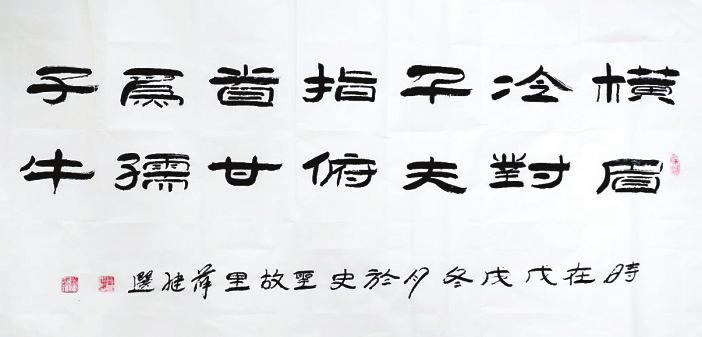 橫眉
冷對
千夫
指俯
首甘
爲孺
子牛
時在戊戌冬月於史聖故里薛選